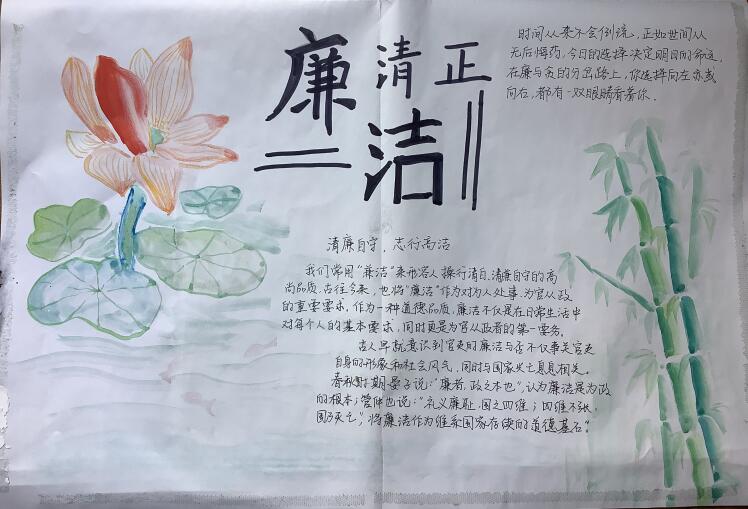 廉清正
洁
时间从来不会倒流，正如世间从
无后悔药，今日的选择决定明日的命运，
在廉与贪的分岔路上，你选择向左亦或
向右，都有一双眼睛看着你．
清廉自守、志行高洁
我们常用“廉洁”来形容人操行清白、清廉自守的高
尚品质，古往今来，也将“廉洁”作为对为人处事、为官从政
的重要要求，作为一种道德品质，廉洁不仅是在日常生活中
对每个人的基本要求，同时更是为官从政者的第一要务。
古人早就意识到官吏的廉洁与否不仅事关官吏
自身的形象和社会风气，同时与国家兴亡息息相关。
春秋时期晏子说：“廉者，政之本也”，认为廉洁是为政
的根本；管仲也说：“礼义廉耻，国之四维；四维不张，
国乃灭亡”，将廉洁作为维系国家存续的道德基石。